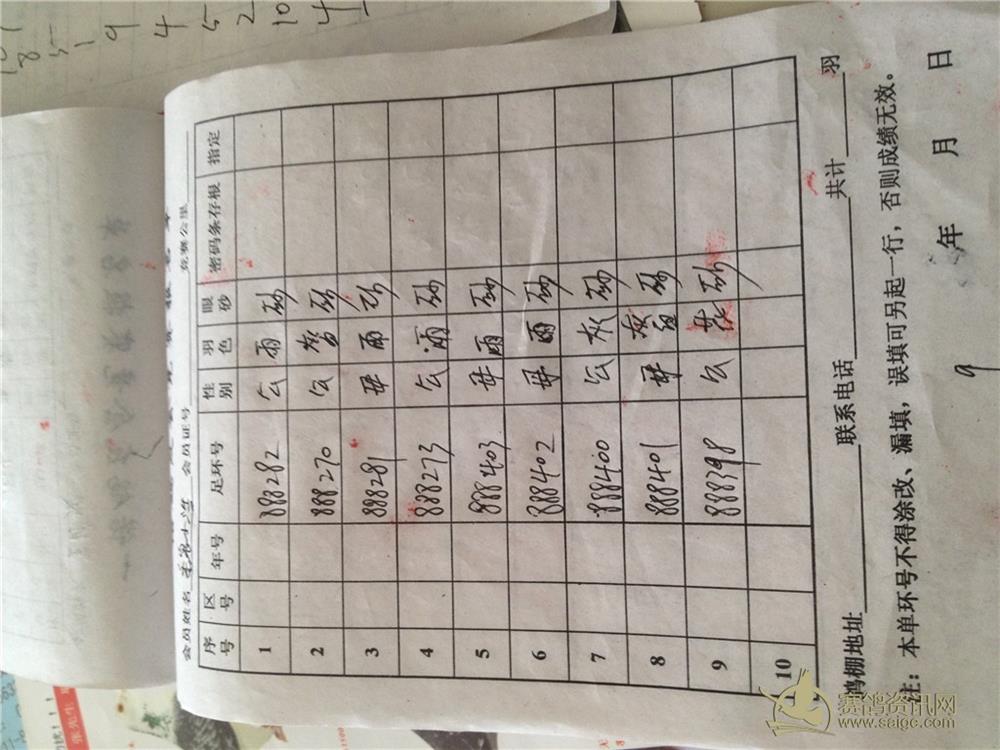 会员姓名 会员证号 竞赛公里
序号 区号 年号 足环号 性别 羽色 眼砂 密码条存根 指定
1 888282 公 雨 砂
2 888270 公 砂
3 888281 母 雨 砂
4 888273 公 雨 砂
5 888403 母 雨 砂
6 888402 母 雨 砂
7 888400 公 灰 砂
8 888401 母 砂
9 888398 公 花 砂
10
鸽棚地址 联系电话 共计 羽
注：本单环号不得涂改、漏填，误填可另起一行，否则成绩无效。
年 月 日
9
赛鸽资讯网
www.saigc.com
张先生